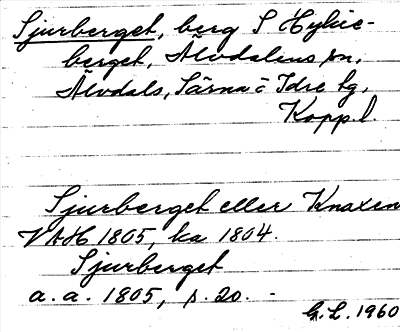 Sjurberget, berg S Hykie-
berget, Älvdalens sn,
Älvdals, Särna o Idre tg,
Kopp.l.
Sjurberget eller Knaxen
VAH 1805, ka 1804.
Sjurberget
a. a. 1805, s. 20. -
G.L. 1960